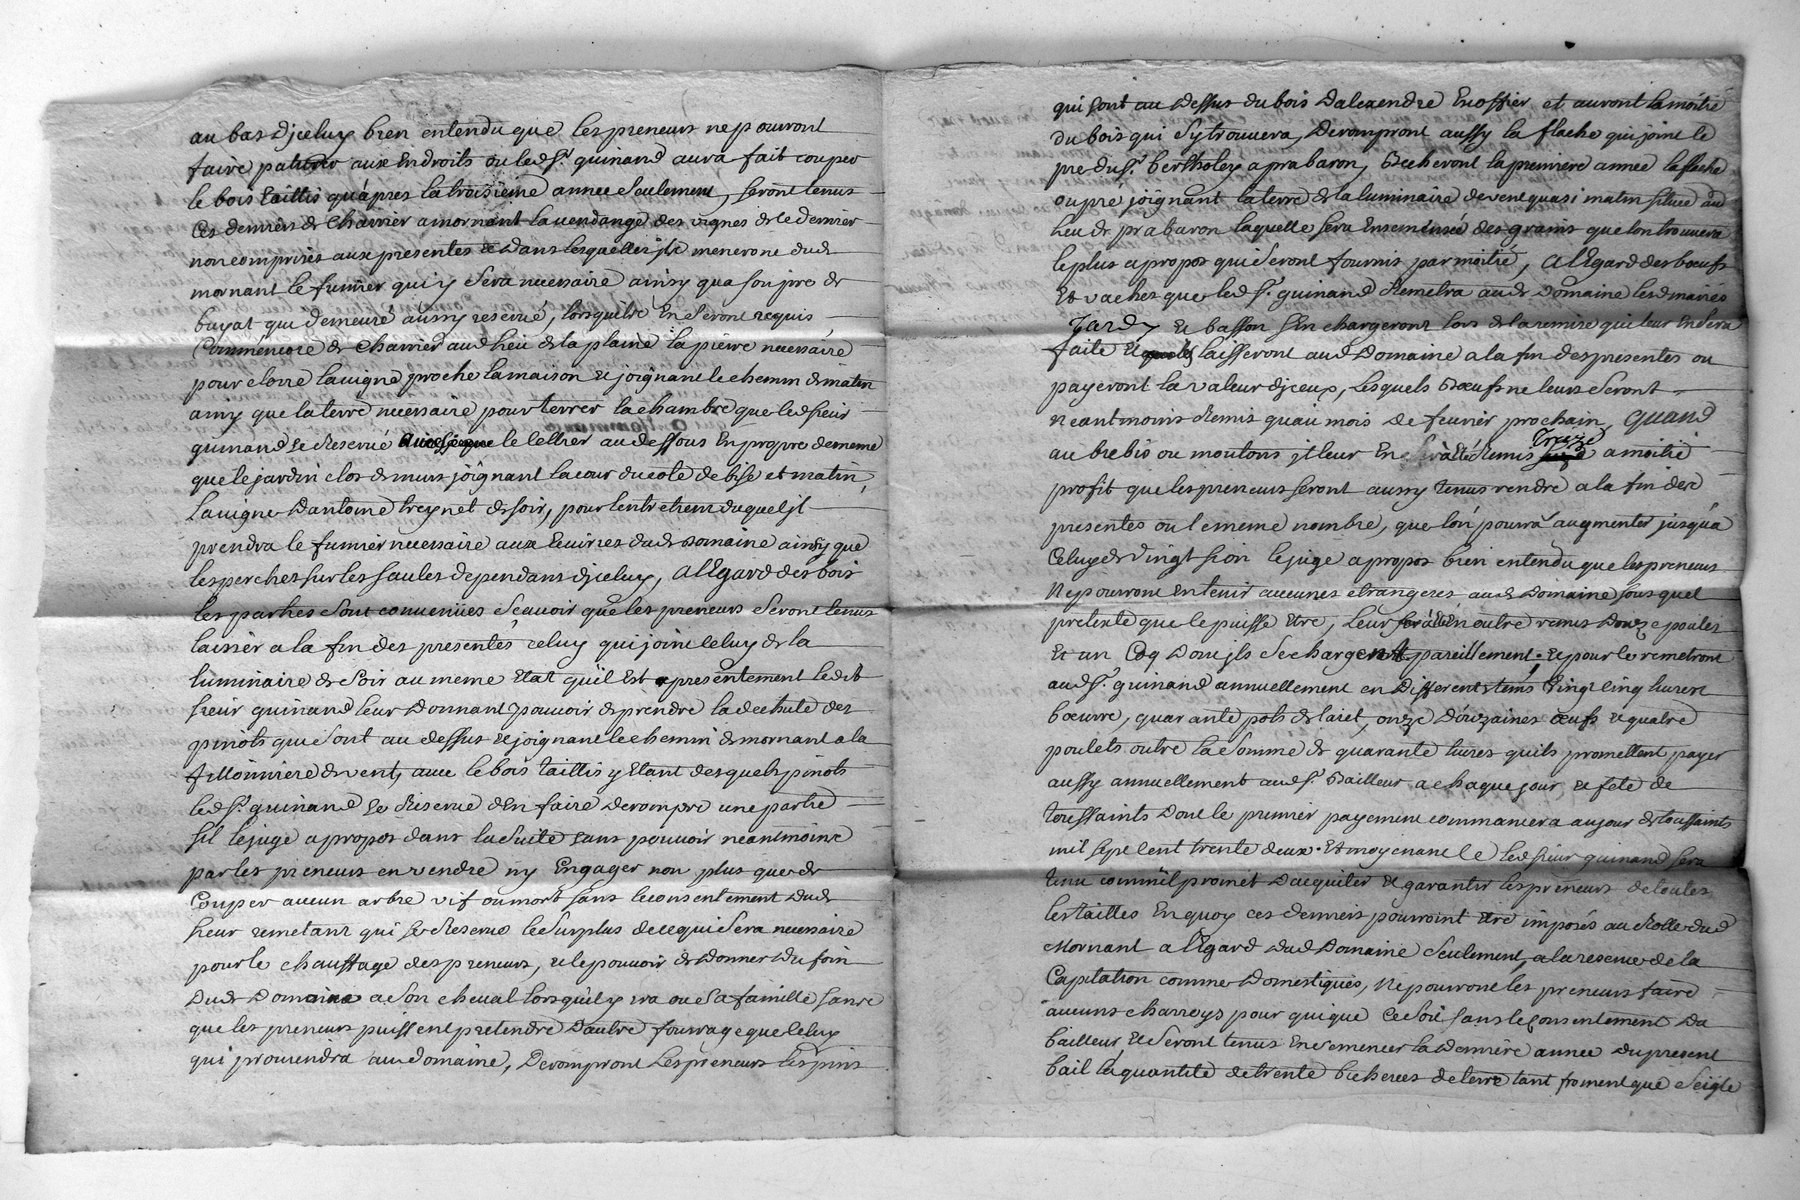 au bas djceluy bien entendu que les preneurs ne pouront
faire paturer aux Endroits ou led sr. quinand aura fait couper
le bois taillis qu'apres la troisieme année Seulement, seront tenus
Ces derniers de Charrier a mornant la vendange des vignes de le dernier
non comprises aux presentes et dans lesquelles jls meneront dud
mornant le fumier qui y Sera necessaire ainsy qua son pre de
buyat qui demeure aussy reservé, lorsqu'ils En Seront requis
Comm'encore de Charrier aud lieu de la plaine la pierre necessaire
pour clorre la vigne proche la maison et joignant le chemin de matin
ainsy que la terre necessaire pour terrer la chambre que led sieur
quinand se Reservé le cellier au dessous En propre de meme
que le jardin clos de murs joignant la cour du coté de bise et matin,
La vigne D'antoine treynet de soir, pour l'entretient duquel jl
prendra le fumier necessaire aux Ecuiries dud domaine ainsy que
les perches sur les saules dependans djceluy, a l'Egard des bois
les parties Sont convenües Scavoir que les preneurs Seront tenus
laisser a la fin des presentes celuy qui joint celuy de la
luminaire de Soir au meme Etat qu'il Est apresentement ledit
sieur quinand leur Donnant pouvoir de prendre la dechute des
pinots qui Sont au dessus et joignant le chemin de mornant a la
fillonniere de vent, avec le bois taillis y Etant desquels pinots
led sr. quinand Se Reserve d'En faire derompre une partie
Sil le juge a propos dans la Suite sans pouvoir neantmoins
par les preneurs en vendre ny Engager non plus que de
Couper aucun arbre vif ou mort sans le consentement dud
sieur remetant qui se Reserve le Surplus de ce qui Sera necessaire
pour le chauffage des preneurs, et le pouvoir de Donner Du foin
Dud Domaine a Son cheval lorsqu'il y ira ou Sa famille sans
que les preneurs puissent pretendre D'autre fourrage que celuy
qui proviendra au domaine, Derompront Les preneurs les pins
qui sont au Dessus du bois D'alexendre et auront la moitié
du bois qui S'y trouvera, Derompront aussy la flache qui joint le
pre du sr. bertholey a prabaron, Becheront la premiere année la flache
ou pre joignant la terre de la luminaire de vent quasi matin située au
lieu de prabaron laquelle sera Ensemensée des grains que l'on trouvera
le plus a propos qui Seront fournis par moitié, a l'Egard des bœufs
Et vaches que led sr. quinand Remetra aud Domaine lesd mariés
Tardy et basson S'En chargeront lors de la remise qui leur En Sera
faite Et laisseront aud Domaine a la fin des presentes ou
payeront la valeur djceux, Lesquels Bœufs ne leurs Seront
neantmoins Remis qu'au mois de fevrier prochain, quand
au brebis ou moutons jl leur En Sera Remis treize a moitié
profit que les preneurs Seront aussy tenus rendre a la fin des
presentes ou le meme nombre, que l'on pourra augmenter jusqu'a
Celuy de vingt si on le juge a propos bien entendu que les preneurs
Ne pourront en tenir aucunes etrangeres aud Domaine sous quel
pretexte que le puisse Etre, Leur En outre remis Douze poules
Et un Coq Dont jls Se chargent pareillement, Et pour ce remetront
aud sr. quinand annuellement en Differents tems Vingt cinq livres
beurre, quarante pots de lait, onze Douzaines œufs et quatre
poulets outre la Somme de quarante livres qu'ils promettent payer
aussy annuellement aud sr. Bailleur a chaque jour et fete de
toussaints Dont le premier payement commancera au jour de toussaints
mil sept cent trente deux. Et moyenant ce led sieur quinand sera
tenu comm'il promet D'acquiter Et garantir les preneurs de toutes
les tailles En quoy ces derniers pourroint Etre imposés au Rolle dud
Mornant a l'Egard dud Domaine Seulement, a la reserve de la
Capitation comme Domestiques, Ne pourront les preneurs faire
aucuns charroys pour qui que Ce Soit sans le Consentement Du
bailleur, Et Seront tenus Ensemencer la Derniere année du present
bail la quantité de trente bicherées de terre tant froment que Seigle